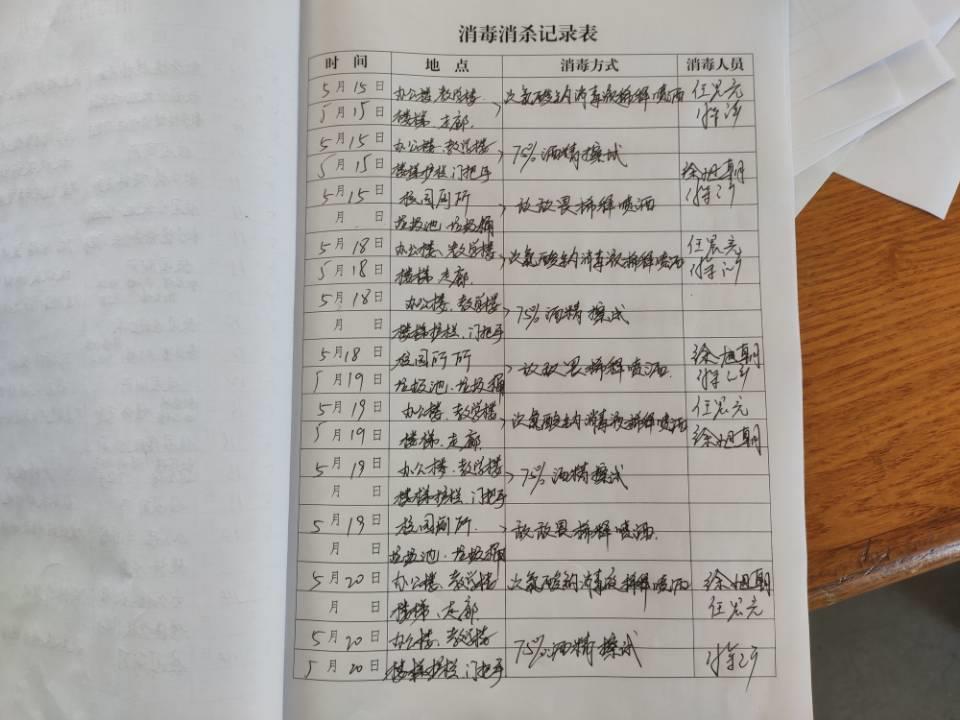 消毒消杀记录表
时 间 地 点 消毒方式 消毒人员
5月15日 办公楼、教学楼 次氯酸钠消毒液稀释喷洒 任宏亮
5月15日 楼梯、走廊
5月15日 办公楼、教学楼 75%酒精擦试
5月15日 楼梯护栏、门把手 徐旭朝
5月15日 校园厕所 敌敌畏稀释喷洒
月 日 垃圾池、垃圾桶
5月18日 办公楼、教学楼 次氯酸钠消毒液稀释喷洒 任宏亮
5月18日 楼梯、走廊
5月18日 办公楼、教学楼 75%酒精擦试
月 日 楼梯护栏、门把手
5月18日 校园所所 敌敌畏稀释喷洒 徐旭朝
5月19日 垃圾池、垃圾桶
5月19日 办公楼、教学楼 次氯酸钠消毒液稀释喷洒 任宏亮
5月19日 楼梯、走廊 徐旭朝
5月19日 办公楼、教学楼 75%酒精擦试
月 日 楼梯护栏、门把手
5月19日 校园厕所 敌敌畏稀释喷洒
月 日 垃圾池、垃圾桶
5月20日 办公楼、教学楼 次氯酸钠消毒液稀释喷洒 徐旭朝
月 日 楼梯、走廊 任宏亮
5月20日 办公楼、教学楼 75%酒精擦试
5月20日 楼梯护栏、门把手